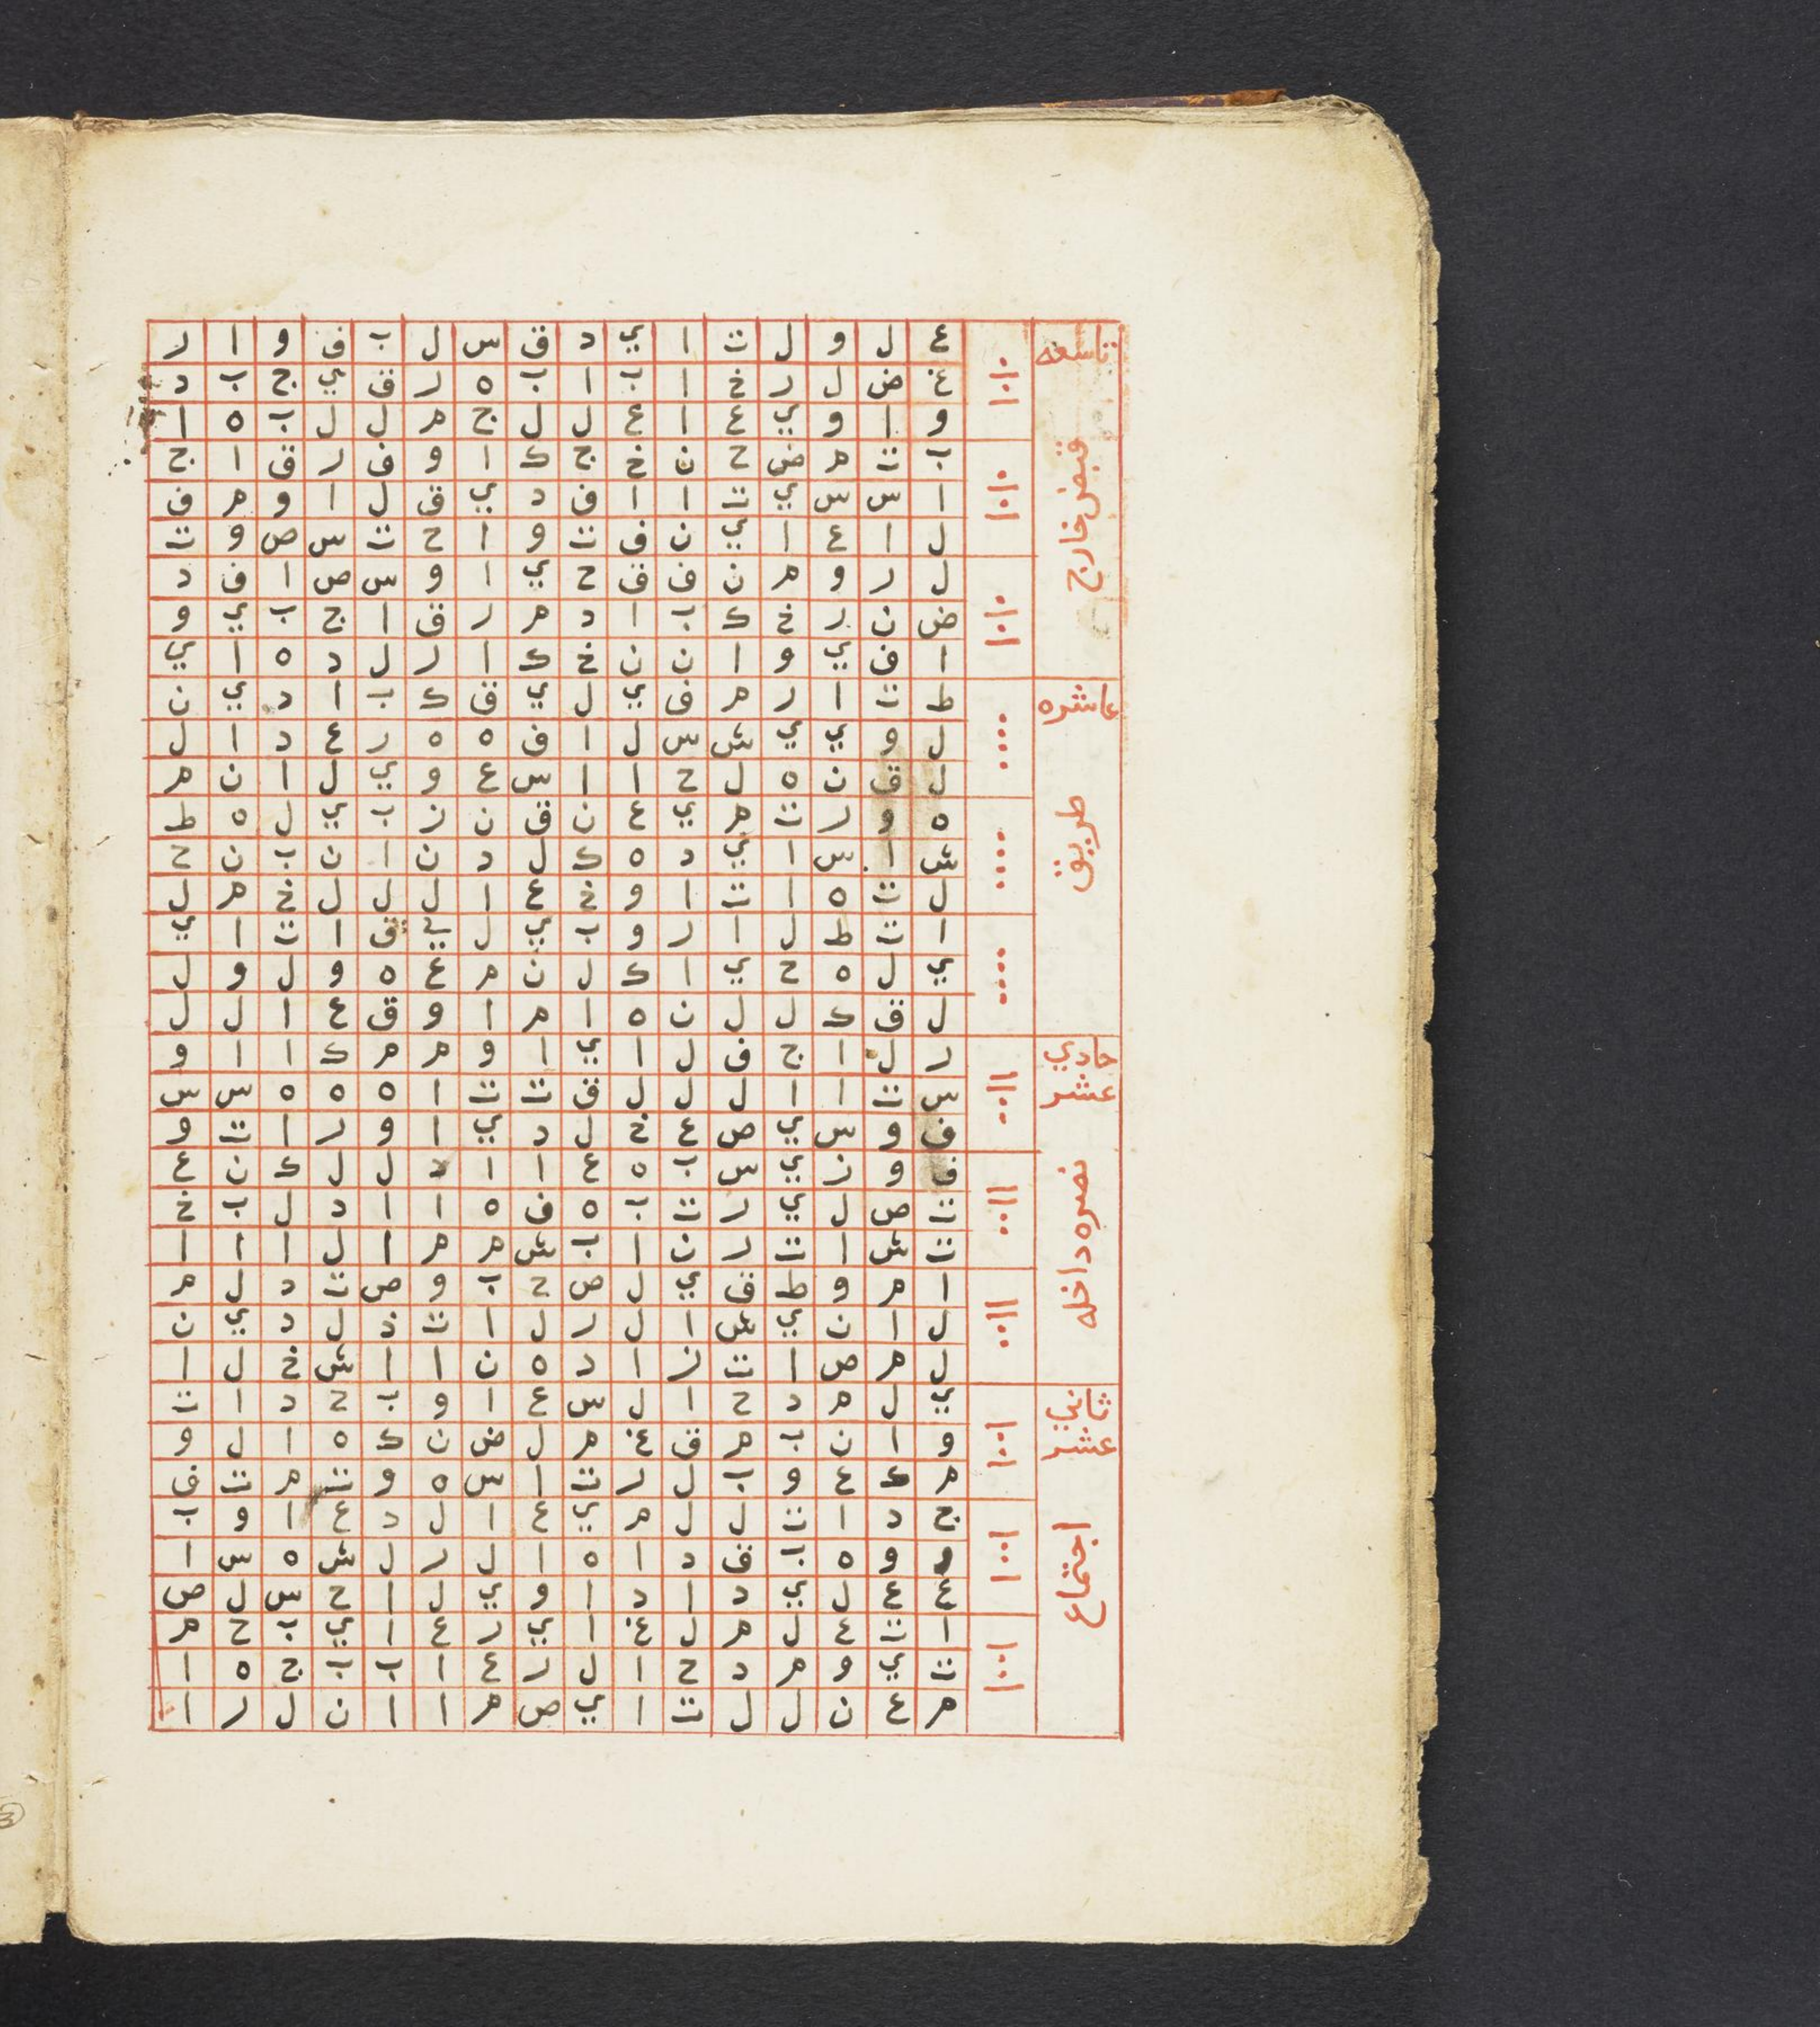 تاسعه
قبض خارج
ع ل و ل ت ا ي د ق س ل ب ف و ا ر
غ ض ل ر خ ا ب ا ب ه ر ق ي ج ب د
و ا و ي ع ا ع ل ل ج م ل ل ب ه ا
ب ت م ض ح ن خ ج ك ا و ف ر ق ا ج
ا س س ي ت ا ا ف د ي ق ل ا و م ف
ل ا ع ا ي ن ف ت و ا ح ت س ص و ت
ل ر و م ن ف ق ح ي ا و س ص ا ف د
ض ن ر خ ك ب ا د م ر ق ا ج ب ي و
ا ف ي و ا ن ن خ ك ا ر ل د ه ا ي
عاشره
طريق
ط ت ا ر م ف ي ل ي ق ك ب ا د ي ن
ل و ي ي ش س ل ا ف ه ه ر ع د ا ل
ل ق ن ه ل ح ا ا س ع و ي ل ا ن م
ه و ر ت م ي ع ن ق ن ز ب ي ل ه ط
ش ا س ا ي د ه ك ل د ن ا ن ب ن ح
ل ت ه ا ت ا و خ ع ا ل ل ل خ م ل
ا ت ط ل ا ر و ب ي ل ي ق ا ت ا ي
ي ل ه ح ي ا ك ل ن م ع ه و ل و ل
ل ق ك ل ل ن ه ا م ا و ق ع ا ل ل
حادي عشر
نصره داخله
ر ل ا ج ف ل ا ي ا و م م ك ا ا و
س ت ا ا ل ل ل ق ت ت ا ه ه ه س س
ف و س ي ص ع خ ل د ي ا و ر ا ت و
ف و ز ي س ب ه ع ا ا د ل ل ك ن ع
ت ص ل ي ر ت ب ه ف ه ا ا د ل ب خ
ت ش ا ت ر ن ا ب ش م م ا ل ا ا ا
ا م و ط ف ي ل ص ح ب و ص ت د ل م
ل ا ن ي ش ا ل ر ل ا ت ذ ل د ي ن
ل م ص ا ت ز ا د ه ن ا ا ش خ ل ا
ثاني عشر
اجتماع
ي ل م د ح ا ل س ع ا و ب ح د ا ت
و ا ن ب م ق غ م ل ض ن ك ه ا ل و
م ك ع و ب ل ر ت ا س ه و ت م ت ف
ج د ا ت ل ل م ي ع ا ل د ع ا و ب
و و ه ب ق د ا ه ا ل ر ل ش ه س ا
ع ع ل ي د ا د ا و ي ل ا ح س ل ص
ا ت ع ل م ل غ ا ي ر ع ا ي ب ح م
ت ي و م د ح ا ل ر ع ا ب ب ج ه ا
م ع ن ل ل ت ا ي ص م ا ا ن ل ر ا